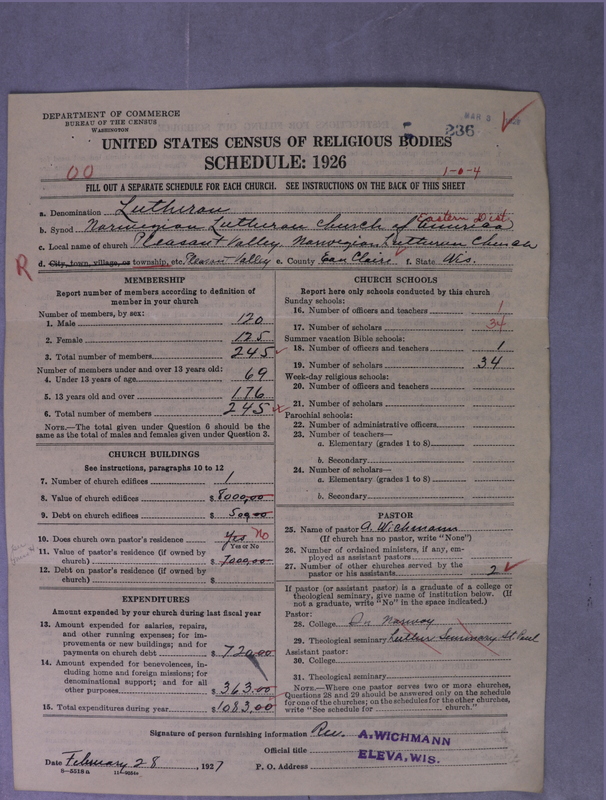 DEPARTMENT OF COMMERCE
BUREAU OF THE CENSUS
WASHINGTON
MAR 3
236
UNITED STATES CENSUS OF RELIGIOUS BODIES
SCHEDULE: 1926
00
1-0-4
FILL OUT A SEPARATE SCHEDULE FOR EACH CHURCH. SEE INSTRUCTIONS ON THE BACK OF THIS SHEET
a. Denomination Lutheran
Eastern Dist.
b. Synod Norwegian Lutheran Church of America
c. Local name of church Pleasant Valley Norwegian Lutheran Church
R
d. City, town, village, or township, etc. Pleasant Valley e. County Eau Claire f. State Wis.
MEMBERSHIP
Report number of members according to definition of
member in your church
Number of members, by sex:
1. Male 120
2. Female 125
3. Total number of members 245
Number of members under and over 13 years old:
4. Under 13 years of age 69
5. 13 years old and over 176
6. Total number of members 245
NOTE.—The total given under Question 6 should be the
same as the total of males and females given under Question 3.
CHURCH BUILDINGS
See instructions, paragraphs 10 to 12
7. Number of church edifices 1
8. Value of church edifices $ 8000,00
9. Debt on church edifices $ 500,00
10. Does church own pastor's residence Yes No
Yes or No
11. Value of pastor's residence (if owned by
church) $ 7000,00
12. Debt on pastor's residence (if owned by
church) $
EXPENDITURES
Amount expended by your church during last fiscal year
13. Amount expended for salaries, repairs,
and other running expenses; for im-
provements or new buildings; and for
payments on church debt $ 720.00
14. Amount expended for benevolences, in-
cluding home and foreign missions; for
denominational support; and for all
other purposes $ 363.00
15. Total expenditures during year $ 1083,00
CHURCH SCHOOLS
Report here only schools conducted by this church
Sunday schools:
16. Number of officers and teachers 1
17. Number of scholars 34
Summer vacation Bible schools:
18. Number of officers and teachers 1
19. Number of scholars 34
Week-day religious schools:
20. Number of officers and teachers
21. Number of scholars
Parochial schools:
22. Number of administrative officers
23. Number of teachers—
a. Elementary (grades 1 to 8)
b. Secondary
24. Number of scholars—
a. Elementary (grades 1 to 8)
b. Secondary
PASTOR
25. Name of pastor A. Wichmann
(If church has no pastor, write "None")
26. Number of ordained ministers, if any, em-
ployed as assistant pastors
27. Number of other churches served by the
pastor or his assistants 2
If pastor (or assistant pastor) is a graduate of a college or
theological seminary, give name of institution below. (If
not a graduate, write "No" in the space indicated.)
Pastor:
28. College In Norway
29. Theological seminary Luther Seminary St Paul
Assistant pastor:
30. College
31. Theological seminary
NOTE.—Where one pastor serves two or more churches,
Questions 28 and 29 should be answered only on the schedule
for one of the churches; on the schedules for the other churches,
write "See schedule for church."
Signature of person furnishing information Rev. A. WICHMANN
Official title
Date February 28, 1927 P. O. Address ELEVA, WIS.
8—5518a